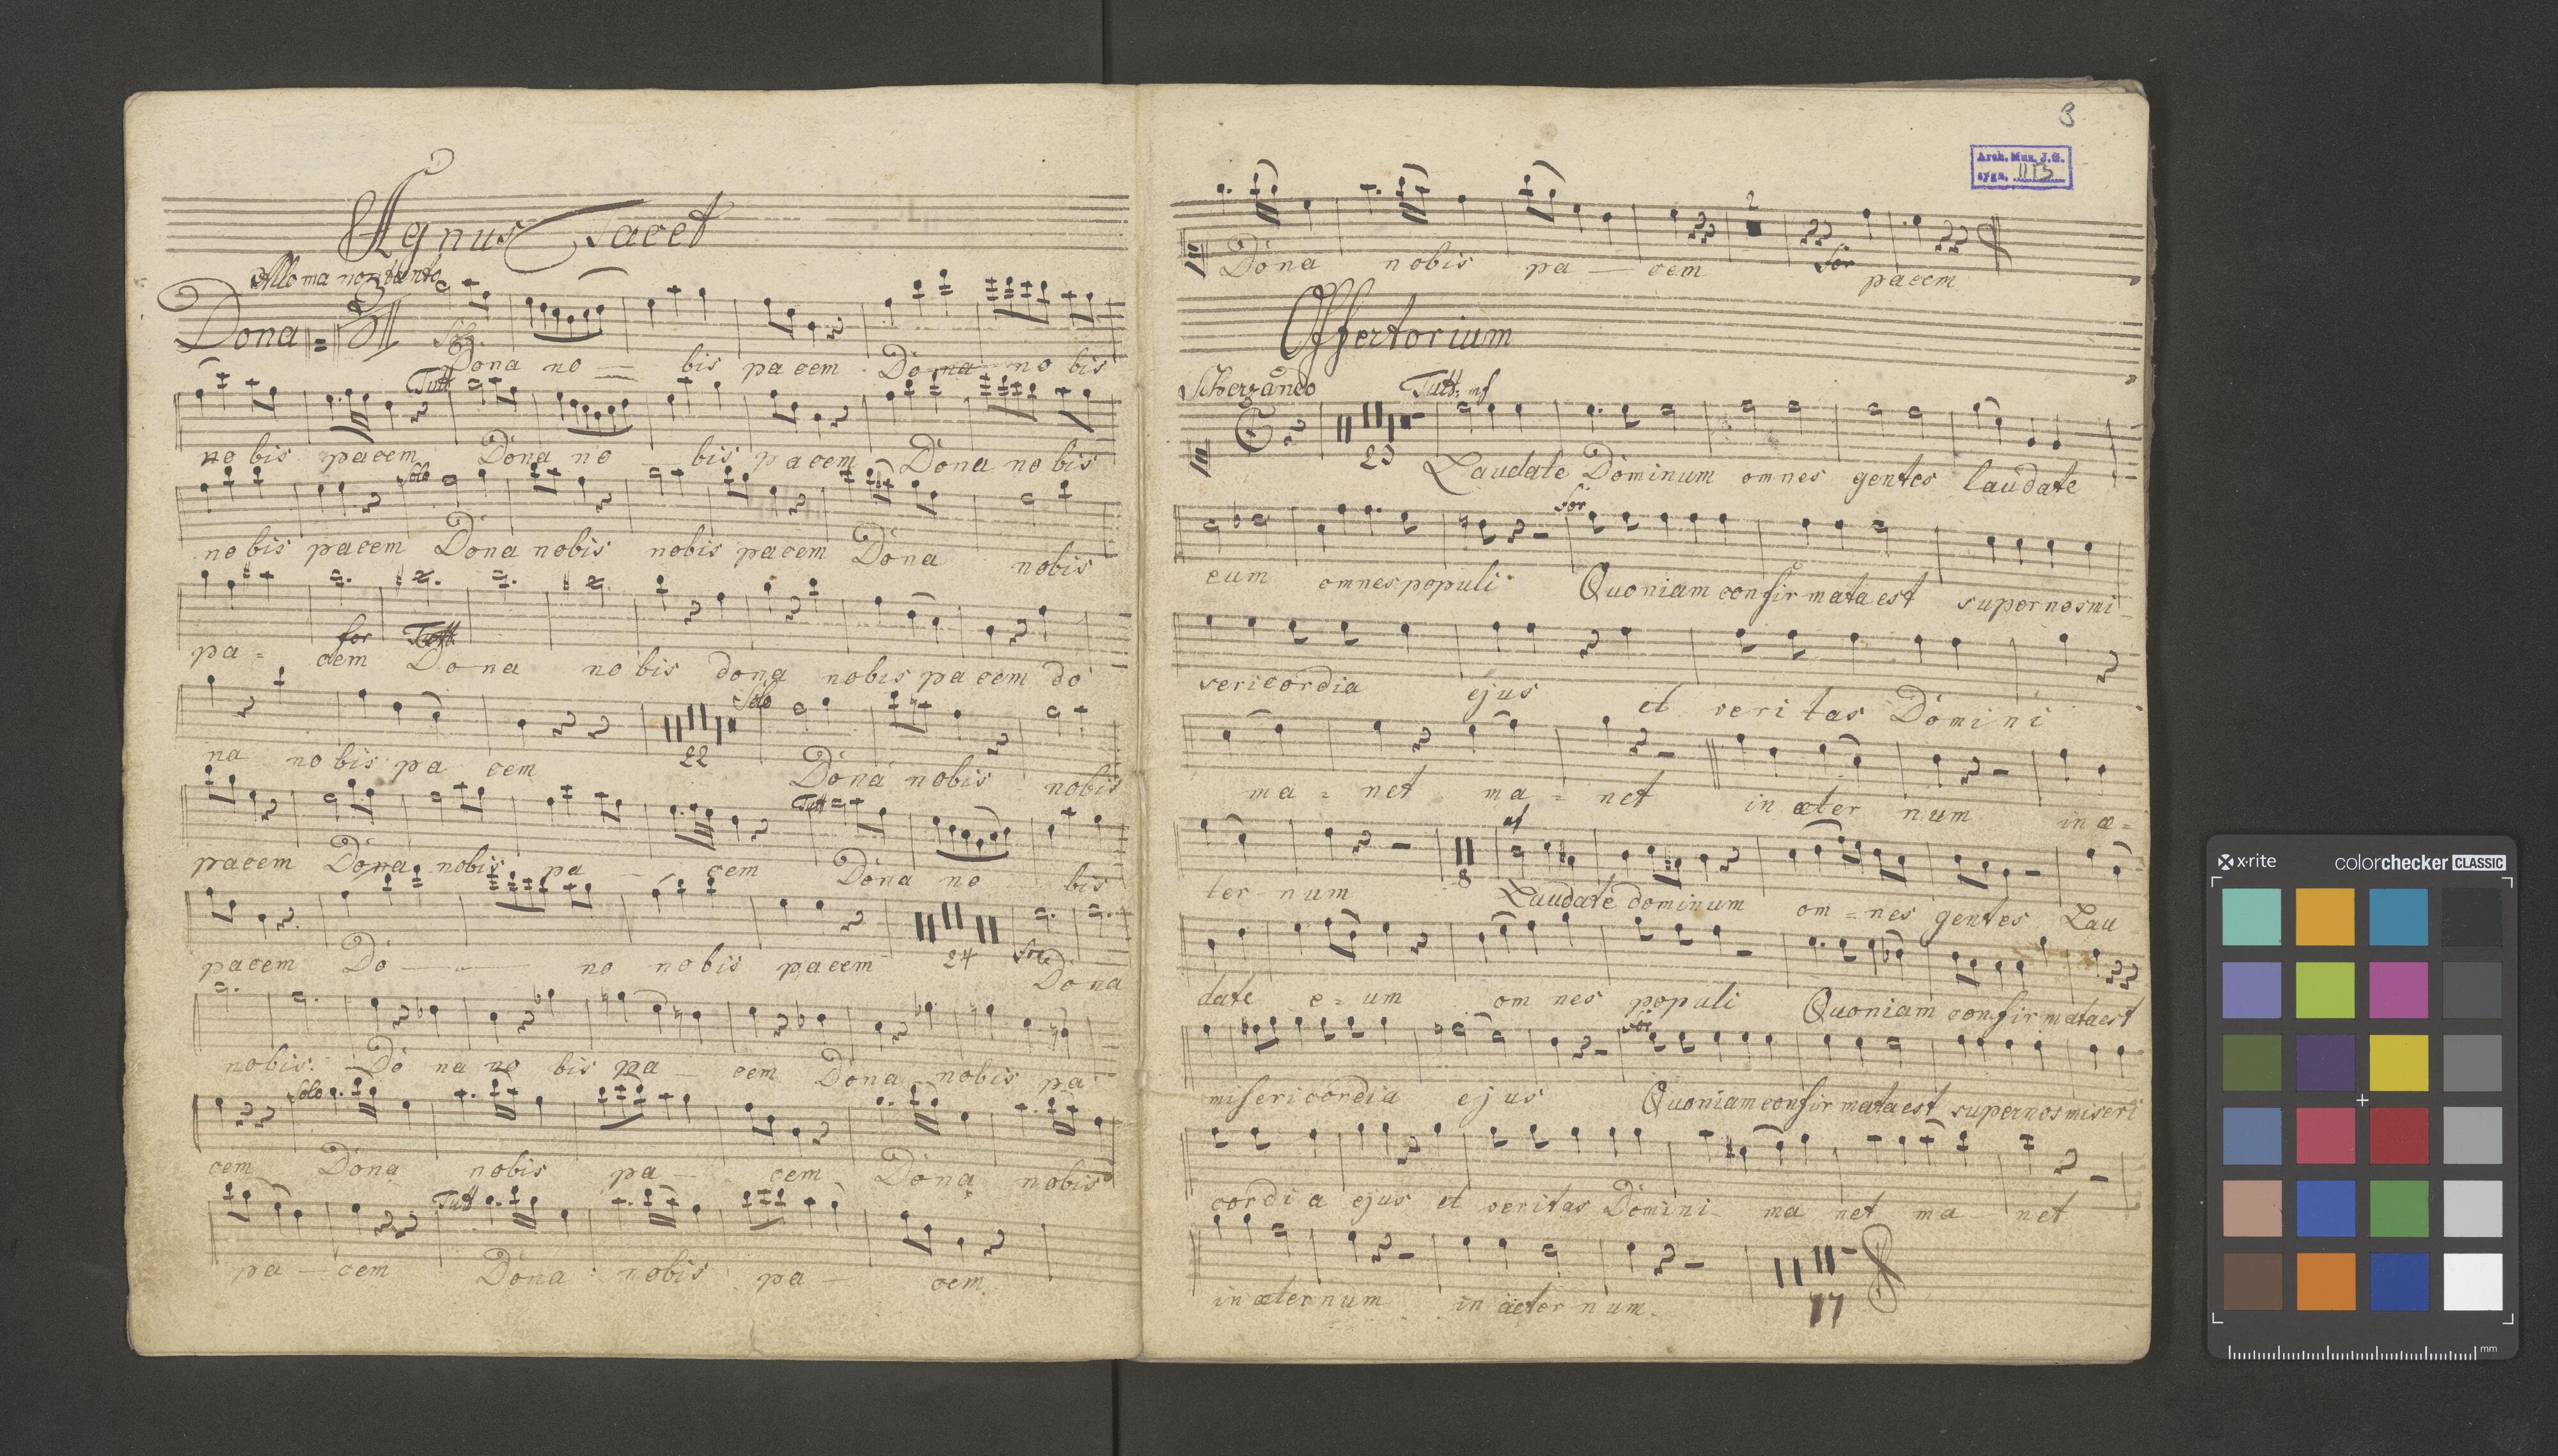 Agnus Tacet
Allo ma non tanto
Dona Solo
Dona no — bis pacem Dona no bis
Tutt
no bis pacem Dona no bis pacem Dona nobis
Solo
nobis pacem Dona nobis nobis pacem Dona nobis
for Tutt
pa = cem Dona nobis dona nobis pacem do
Solo
22
na nobis pa cem Dona nobis nobis
Tutt
pacem Dona nobis pa — cem Dona no bis
24
pacem Do — no nobis pacem Dona
nobis. Do na no bis pa — cem Dona nobis pa
Solo
cem Dona nobis pa — cem Dona nobis
Tutt
pa — cem Dona nobis pa — cem.
3
Arch. Muz. J.G.
sygn. 1113
2
Dona nobis pa — cem for pacem
Offertorium
Scherzando Tutt: mf
23
Laudate Dominum omnes gentes laudate
for
eum omnes populi Quoniam confirmata est super nos mi
sericordia ejus et veritas Domini
ma = net ma = net in æter num in æ=
mf
8
ter num Laudate dominum om = nes gentes Lau
date e = um om nes populi Quoniam confirmata est
for
misericordia ejus Quoniam confirmata est super nos miseri
cordia ejus et veritas Domini ma net ma net
17
in æternum in æter num.
x·rite colorchecker CLASSIC
mm